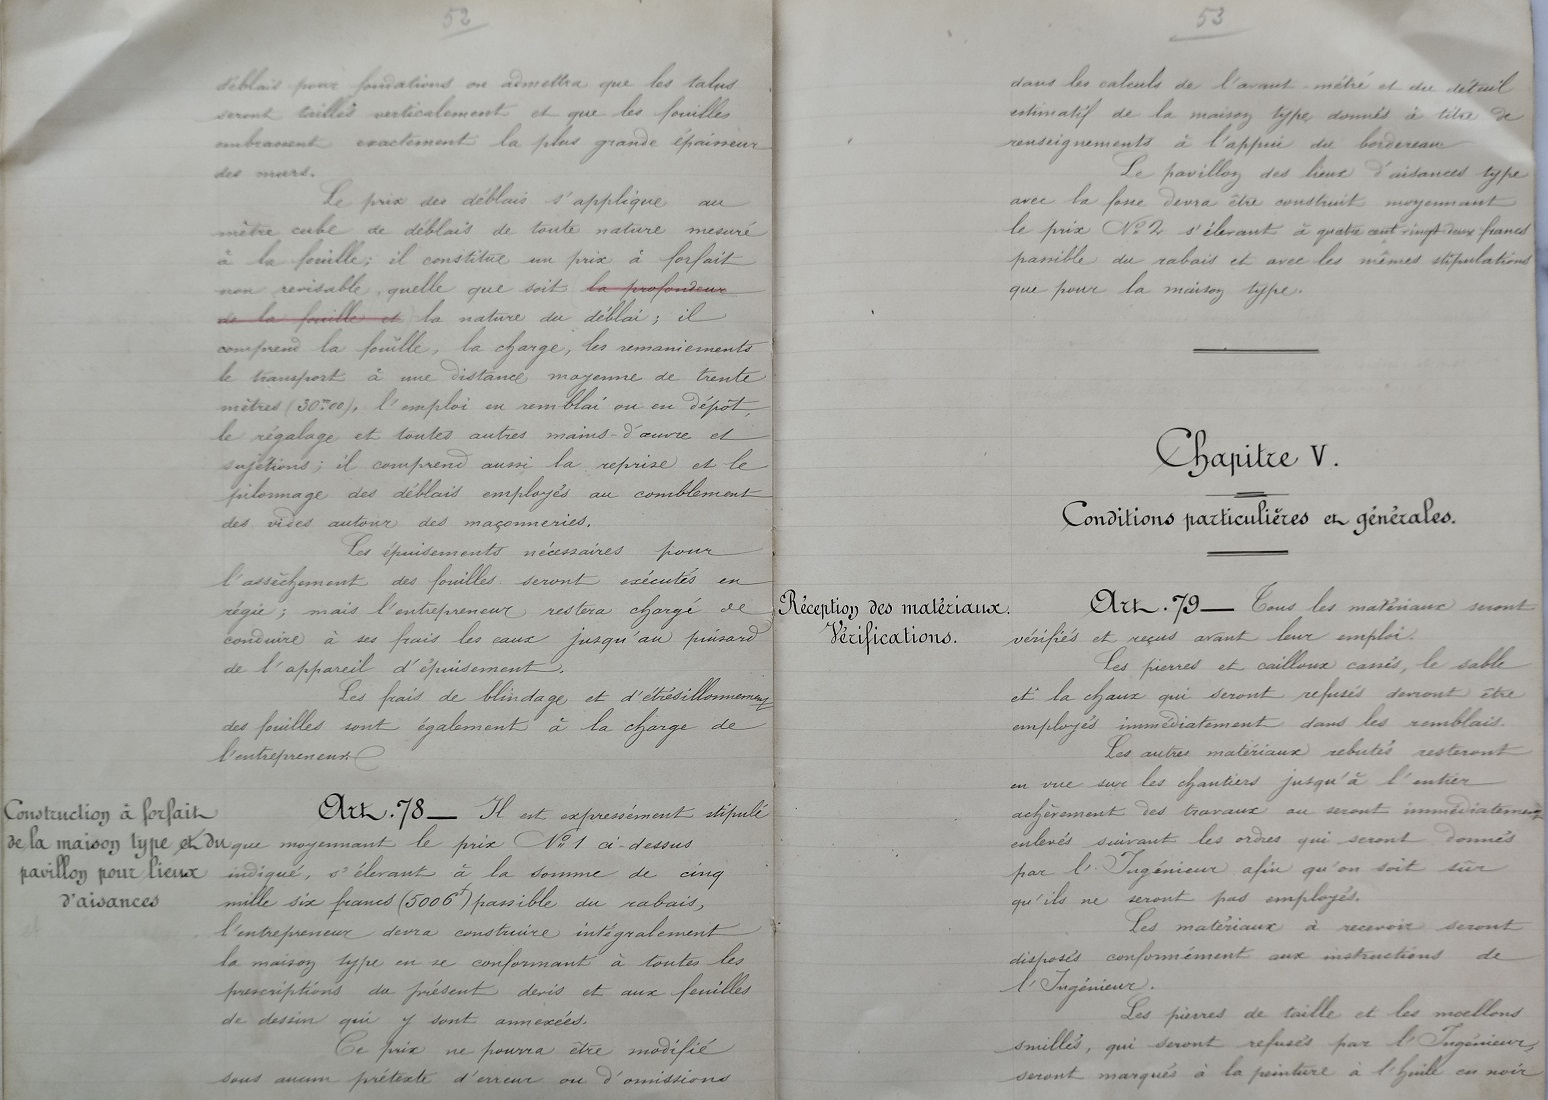 52
déblais pour fondations on admettra que les talus
seront taillés verticalement et que les fouilles
embrassent exactement la plus grande épaisseur
des murs.
Le prix des déblais s'applique au
mètre cube de déblais de toute nature mesuré
à la fouille; il constitue un prix à forfait
non revisable quelle que soit la profondeur
de la fouille et la nature du déblai; il
comprend la fouille, la charge, les remaniements
le transport à une distance moyenne de trente
mètres (30m00), l'emploi en remblai ou en dépôt,
le régalage et toutes autres mains-d'œuvre et
sujétions; il comprend aussi la reprise et le
pilonnage des déblais employés au comblement
des vides autour des maçonneries.
Les épuisements nécessaires pour
l'assèchement des fouilles seront exécutés en
régie; mais l'entrepreneur restera chargé de
conduire à ses frais les eaux jusqu'au puisard
de l'appareil d'épuisement.
Les frais de blindage et d'étrésillonnement
des fouilles sont également à la charge de
l'entrepreneur.
Construction à forfait
de la maison type et du
pavillon pour lieux
d'aisances
Art. 78 — Il est expressément stipulé
que moyennant le prix No 1 ci-dessus
indiqué, s'élevant à la somme de cinq
mille six francs (5006f) passible du rabais,
l'entrepreneur devra construire intégralement
la maison type en se conformant à toutes les
prescriptions du présent devis et aux feuilles
de dessin qui y sont annexées.
Ce prix ne pourra être modifié
sous aucun prétexte d'erreur ou d'omissions
53
dans les calculs de l'avant-métré et du détail
estimatif de la maison type, donnés à titre de
renseignements à l'appui du bordereau
Le pavillon des lieux d'aisances type
avec la fosse devra être construit moyennant
le prix No 2 s'élevant à quatre cent vingt deux francs
passible du rabais et avec les mêmes stipulations
que pour la maison type.
Chapitre V.
Conditions particulières et générales.
Réception des matériaux.
Vérifications.
Art. 79 — Tous les matériaux seront
vérifiés et reçus avant leur emploi.
Les pierres et cailloux cassés, le sable
et la chaux qui seront refusés devront être
employés immédiatement dans les remblais.
Les autres matériaux rebutés resteront
en vue sur les chantiers jusqu'à l'entier
achèvement des travaux ou seront immédiatement
enlevés suivant les ordres qui seront donnés
par l'Ingénieur afin qu'on soit sûr
qu'ils ne seront pas employés.
Les matériaux à recevoir seront
disposés conformément aux instructions de
l'Ingénieur.
Les pierres de taille et les moellons
smillés, qui seront refusés par l'Ingénieur,
seront marqués à la peinture à l'huile en noir